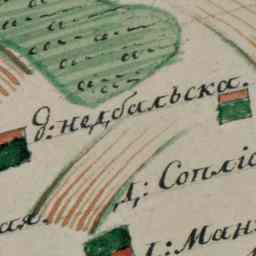 д: недбальска.
Д: Сопліс
ая.
Д: Ман